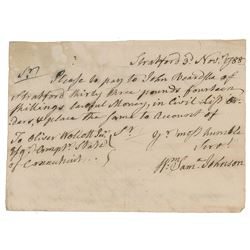 Stratford 3d Novr. 1788
Sir
Please to pay to John Beardslee of
Stratford thirty three pounds fourteen
shillings lawful Money, in Civil List Or-
ders, & place the same to Account of
Sr.
Yr. most humble
Servt.
To Oliver Wolcott Jur.
Esqr. Comptr. State
of Connecticut
Wm. Saml. Johnson